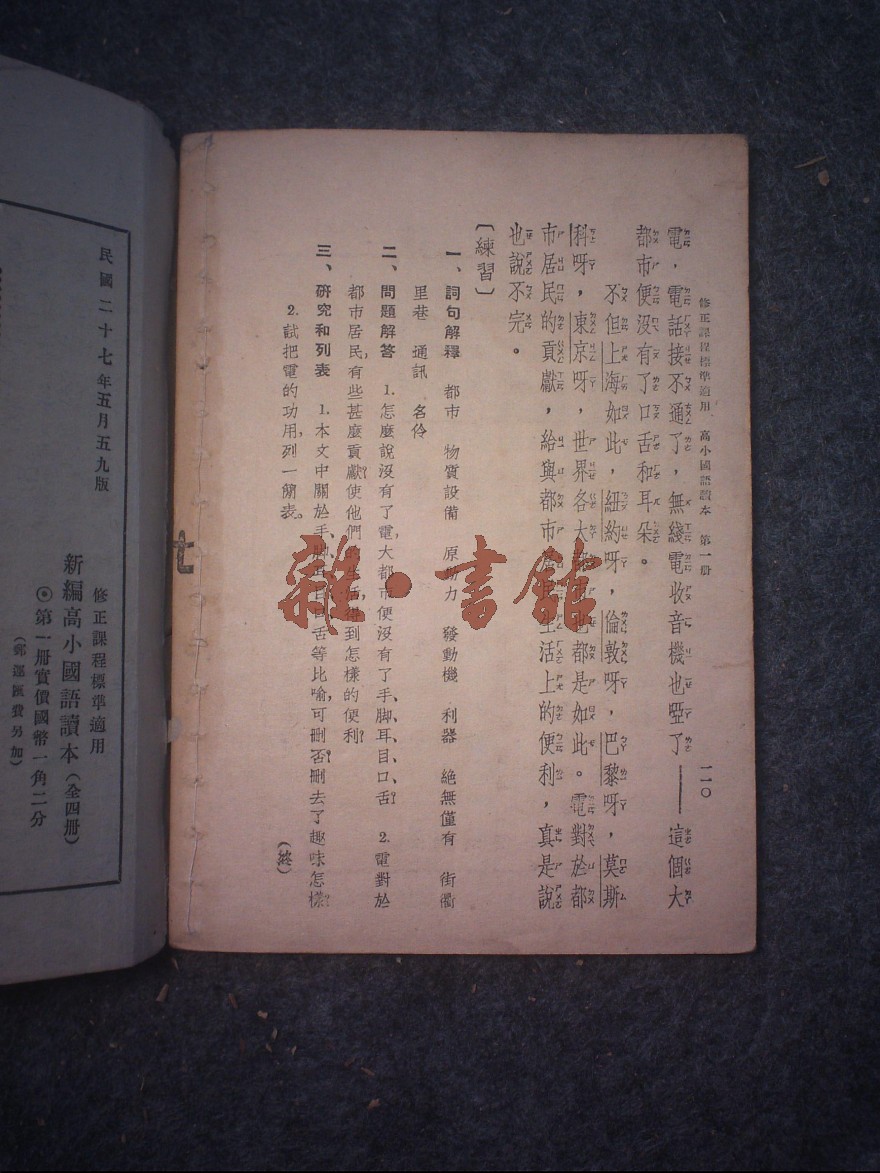 修正課程標準適用 高小國語讀本 第一册 一一〇
電，電話接不通了，無綫電收音機也啞了——這個大
都市便沒有了口舌和耳朵。
不但上海如此，紐約呀，倫敦呀，巴黎呀，莫斯
科呀，東京呀，世界各大都市也都是如此。電對於都
市居民的貢獻，給與都市居民生活上的便利，真是說
也說不完。
〔練習〕
一、詞句解釋 都市 物質設備 原動力 發動機 利器 絕無僅有 街衢
里巷 通訊 名伶
二、問題解答 1.怎麼說沒有了電，大都市便沒有了手、脚、耳、目、口、舌？ 2.電對於
都市居民，有些甚麼貢獻？使他們的生活得到怎樣的便利？
三、研究和列表 1.本文中關於手、脚、耳目口舌等比喻，可删否？删去了趣味怎樣？
2.試把電的功用，列一簡表。
（終）
民國二十七年五月五九版
修正課程標準適用
新編高小國語讀本（全四册）
◉第一册實價國幣一角二分
（郵運匯費另加）
雜·書館
七